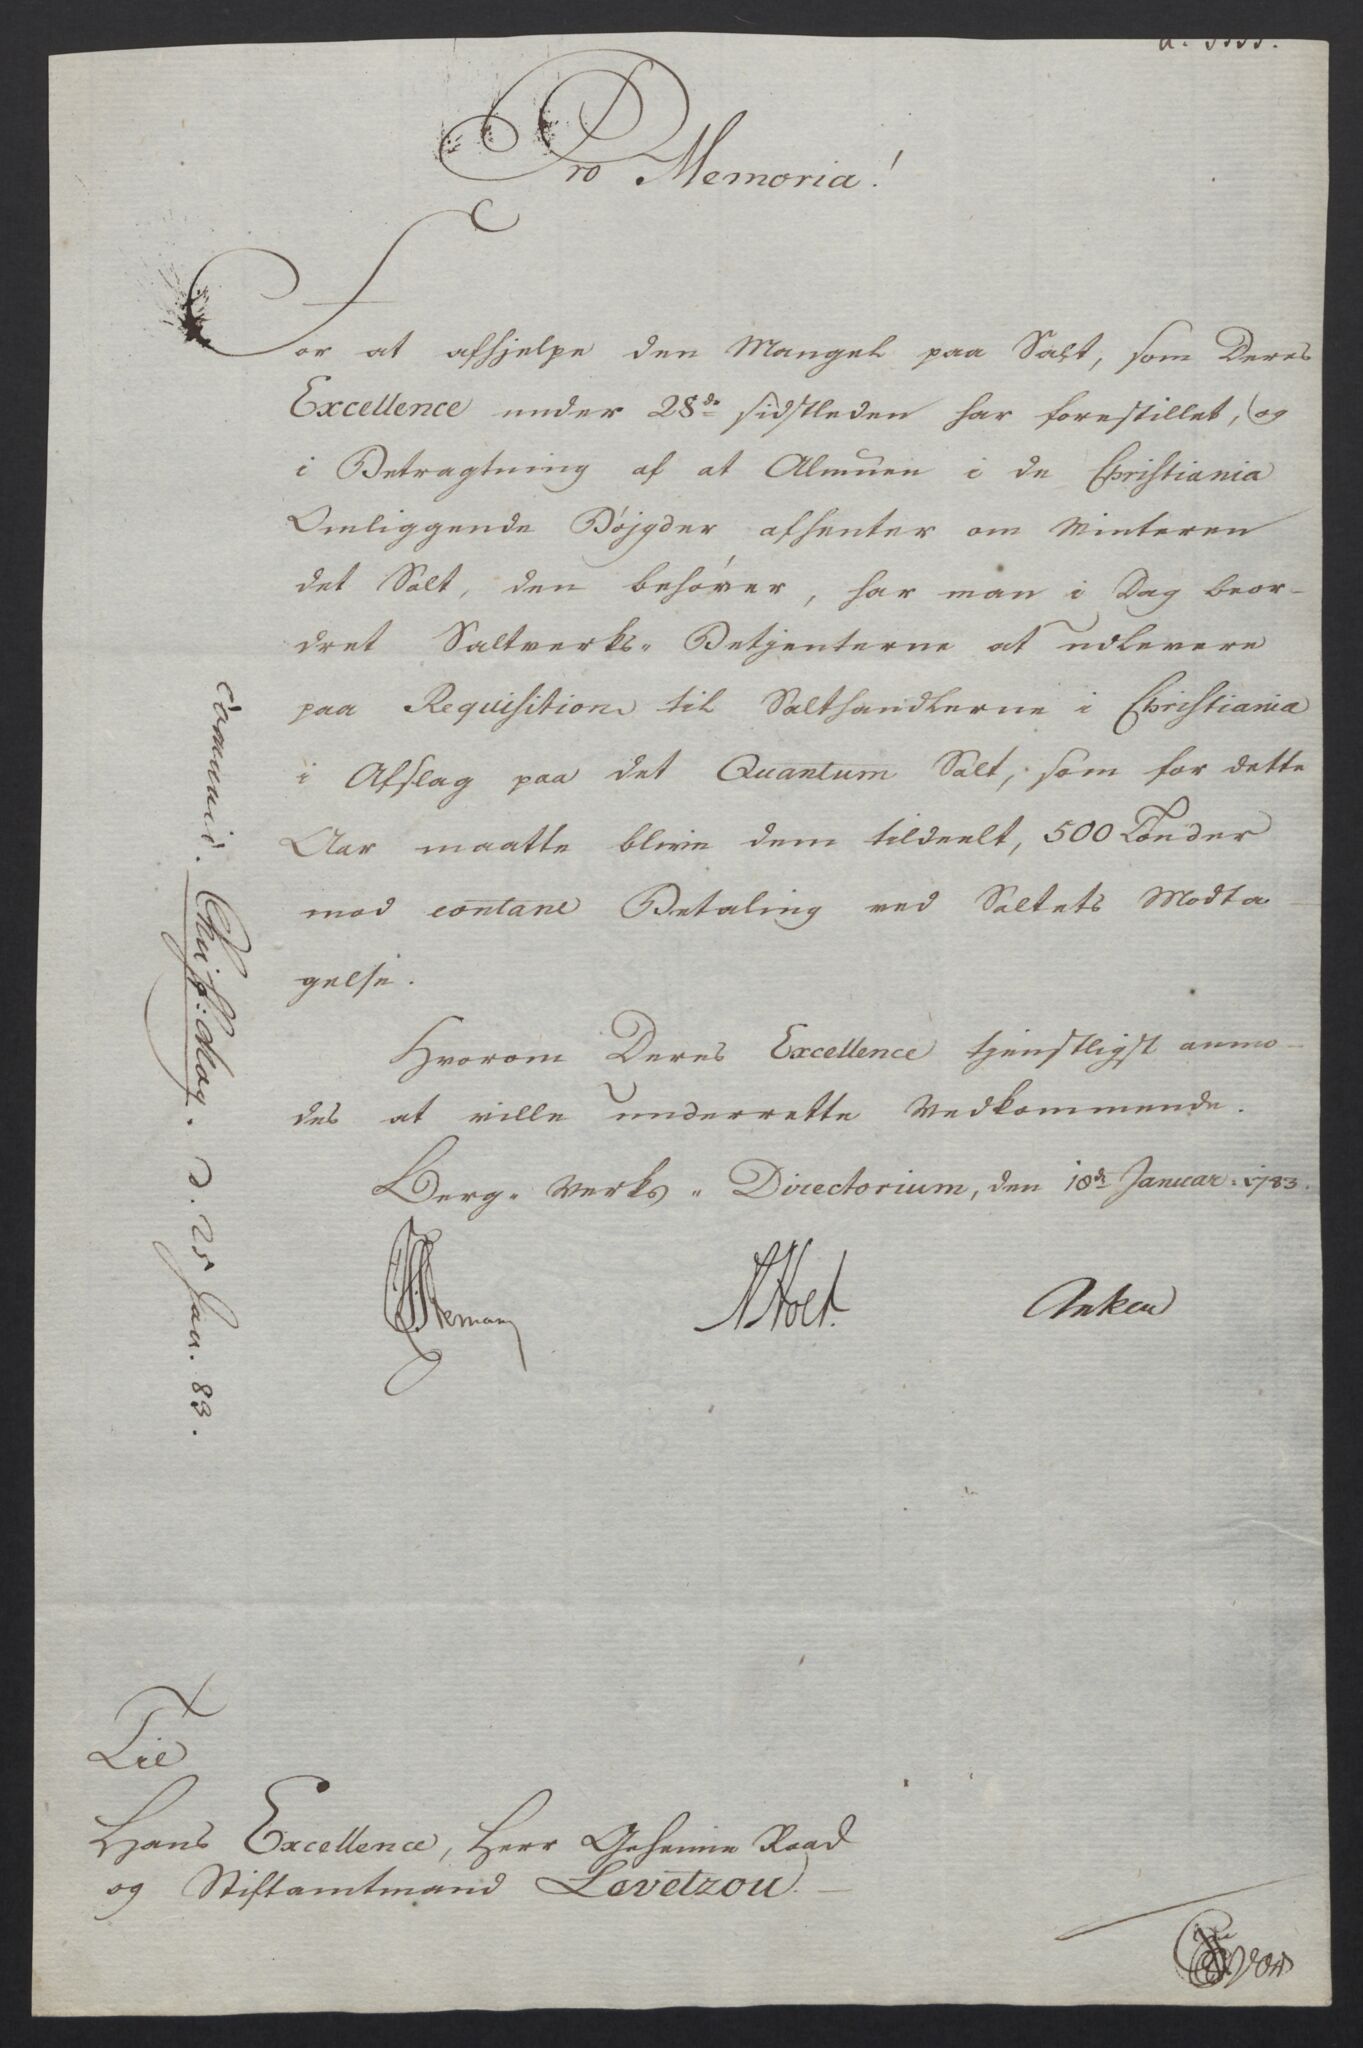 Pro Memoria!
For at afhjelpe den Mangel paa Salt, som Deres
Excellence under 28de sidstleden har forestillet, og
i Betragtning af at Almuen i de Christiania
Omliggende Bøjgder afhenter om Winteren
det Salt, den behøver, har man i Dag beor-
dret Saltverks- Betjenterne at udlevere
paa Requisition til Salthandlerne i Christiania
i Afslag paa det Quantum Salt, som for dette
Aar maatte blive dem tildeelt, 500 Tønder
mod contant Betaling ved Saltets Modta-
gelse.
Hvorom Deres Excellence tjenstligst anmo-
des at ville underrette Vedkommende.
Berg- Werks- Directorium, den 18de Januar: 1783.
Stemann
Holt.
Anker
communic. Chrisf: Mag. d. 25 Jan. 83.
Til
Hans Excellence, Herr Geheime Raad
og Stiftamtmand Levetzou.